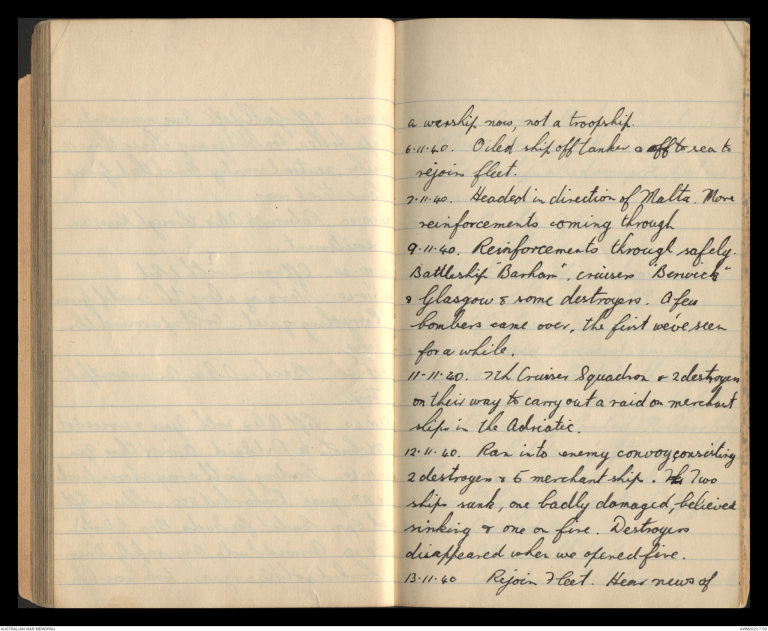 a warship now, not a troopship.
6.11.40. Oiled ship off tanker & off to sea to
rejoin fleet.
7.11.40. Headed in direction of Malta. More
reinforcements coming through
9.11.40. Reinforcements through safely.
Battleship "Barham", cruisers "Berwick"
& Glasgow & some destroyers. A few
bombers came over, the first we've seen
for a while.
11-11-40. 7th Cruiser Squadron & 2 destroyers
on their way to carry out a raid on merchant
ships in the Adriatic.
12.11.40. Ran into enemy convoy consisting
2 destroyers & 5 merchant ship. Two
ships sunk, one badly damaged, believed
sinking & one on fire. Destroyers
disappeared when we opened fire.
13.11.40 Rejoin Fleet. Hear news of
AUSTRALIAN WAR MEMORIAL